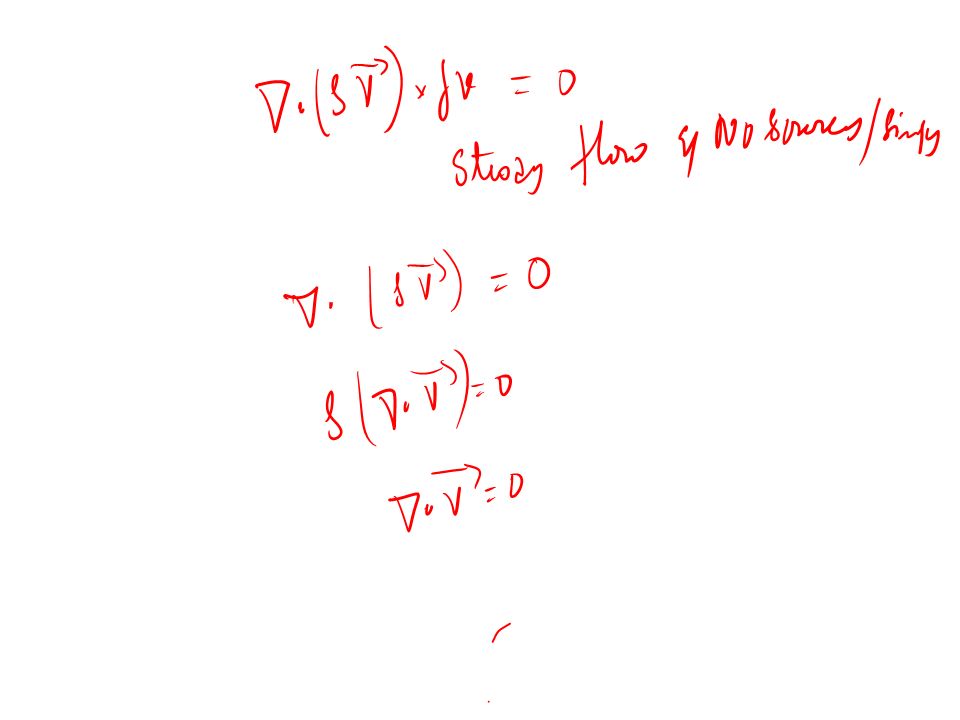 ∇·(ρV⃗) × ∫v = 0
Steady flow & No sources/sinks
∇· (ρV⃗) = 0
ρ(∇·V⃗) = 0
∇·V⃗ = 0